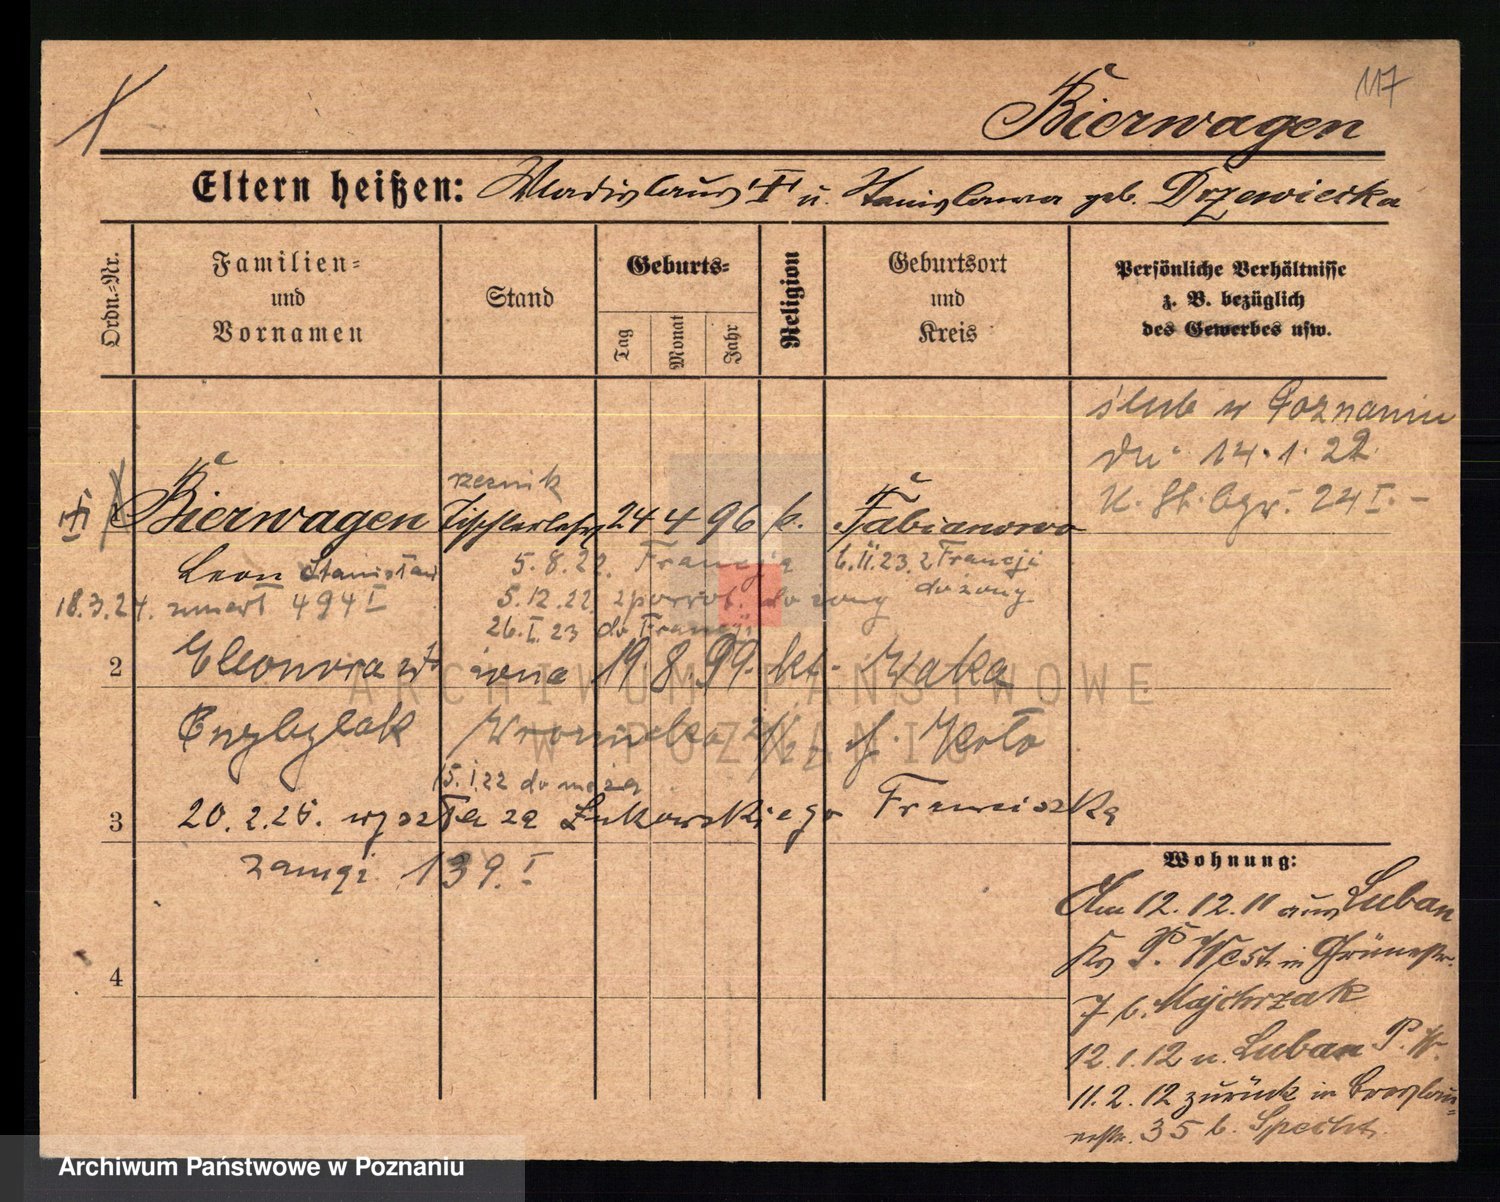 117
Bierwagen
Eltern heißen: Wladislaus u. Stanislawa geb. Drzewiecka
Ordn.-Nr.
Familien-
und
Vornamen
Stand
Geburts-
Tag
Monat
Jahr
Religion
Geburtsort
und
Kreis
Persönliche Verhältnisse
z. B. bezüglich
des Gewerbes usw.
ślub w Poznaniu
dn. 14.1.22
24 I. -
rzeźnik
1 Bierwagen Tischlerlehrl. 24 4 96 k. Fabianowo
Leon Stanisław 5.8.22. Francja 6.II.23. z Francji
do żony
18.3.24. zmarł 494 I 5.12.22 z powrot. do żony
26.I.23 do Francji
2 Eleonora żona 19. 8. 99. kt.
Wroniecka
15.I.22 do męża
3 20.2.25. wyszła za Łukowskiego Franciszka
zamęż 139.I
4
Wohnung:
Am 12.12.11 aus Luban
Krs P. West in Grünestr.
7 b. Majchrzak
12.1.12 n. Luban P. W.
11.2.12 zurück in Breslauer-
str. 35 b. Specht
ARCHIWUM PAŃSTWOWE
W POZNANIU
Archiwum Państwowe w Poznaniu